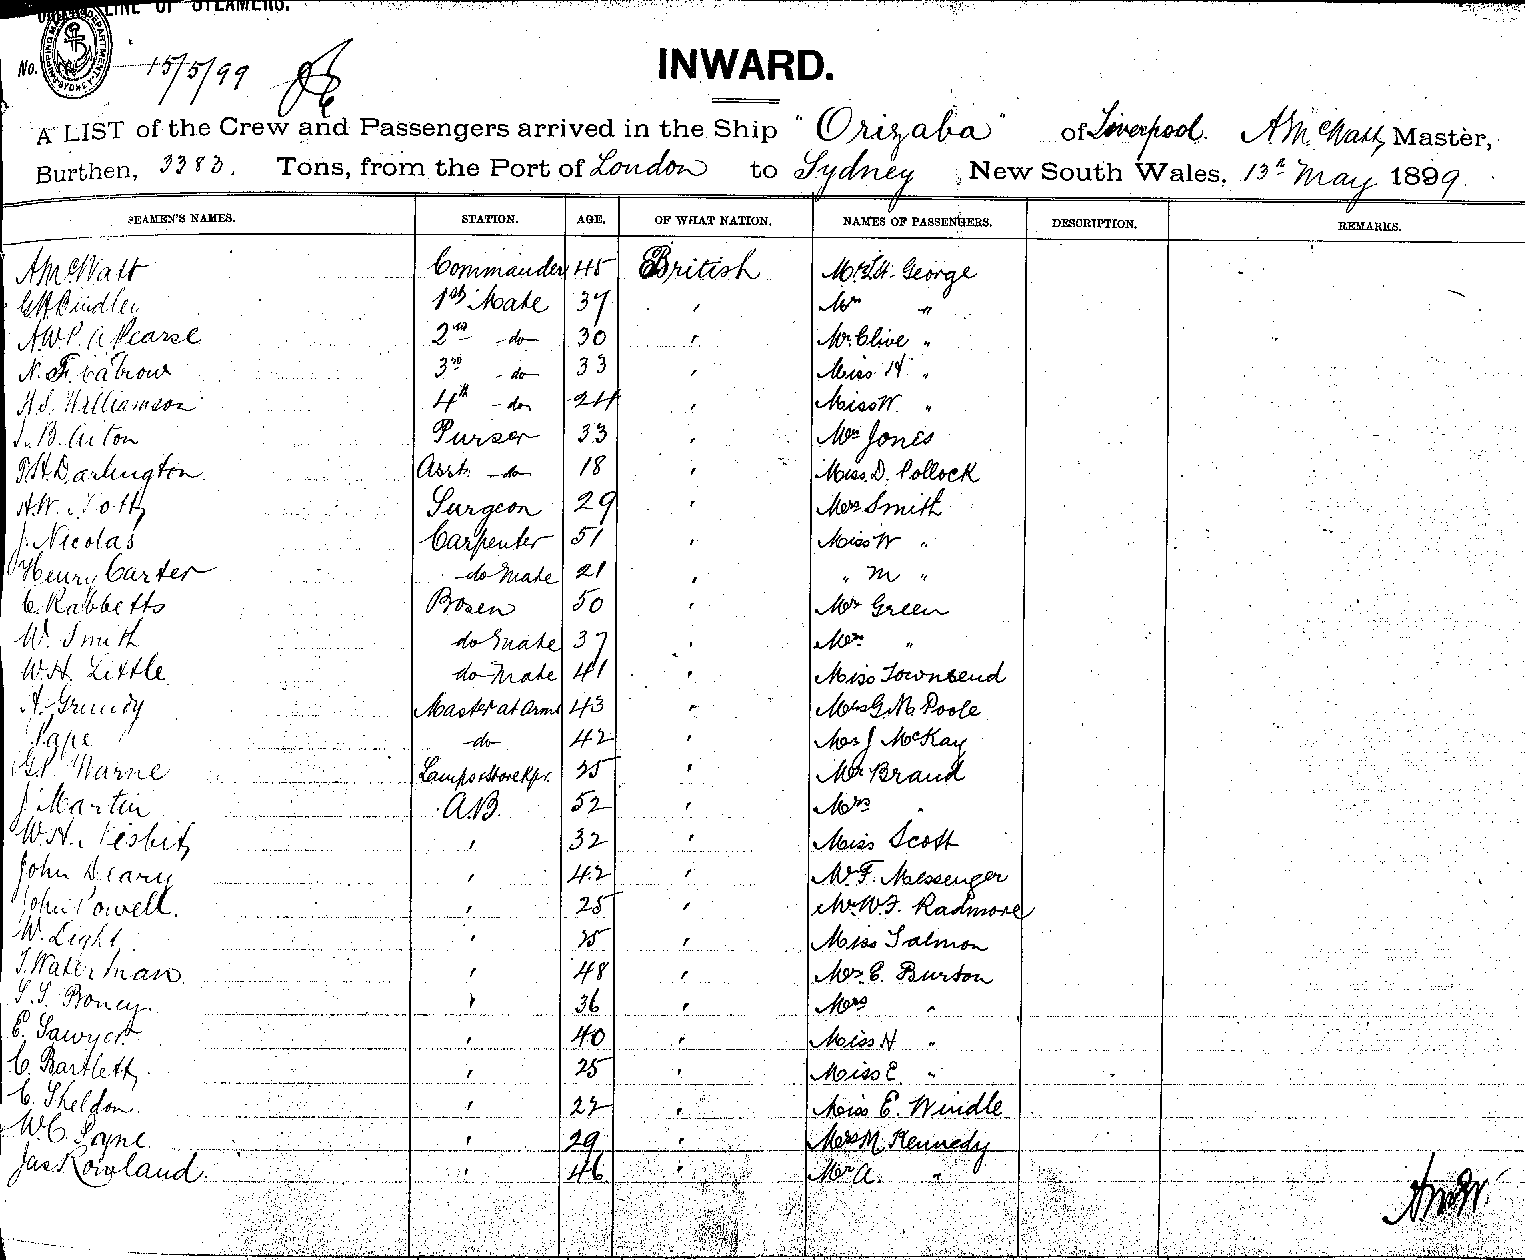 LINE OF STEAMERS.
No. 15/5/99
INWARD.
A LIST of the Crew and Passengers arrived in the Ship "Orizaba" of Liverpool. A McWatt, Master,
Burthen, 3383. Tons, from the Port of London to Sydney, New South Wales, 13th May 1899.
SEAMEN'S NAMES. STATION. AGE. OF WHAT NATION. NAMES OF PASSENGERS. DESCRIPTION. REMARKS.
A McWatt Commander 45 British St. George
1st Mate 37 " "
Pearse 2nd do 30 " Mr. Clive "
N. F. 3rd do 33 " Miss H. "
Williamson 4th do 24 " Miss W. "
B. Purser 33 " Jones
Darlington Asst. do 18 " Miss D. Pollock
A.W. Surgeon 29 " Smith
J. Nicolas Carpenter 51 " Miss W "
Henry Carter do Mate 21 " " M "
C. Rabbetts Bosen 50 " Mr Green
W. Smith do Mate 37 " Mrs "
W.H. Little do Mate 41 " Miss Townsend
A. Grundy Master at Arms 43 " Poole
Pape do 42 " J McKay
Warne Lamps & Store Kpr. 25 " Mr Braud
J. Martin A.B. 52 " Mrs "
W.H. Nesbit " 32 " Miss Scott
John Deary " 42 " Mr F. Messenger
John Powell. " 25 " Radmore
W. Light " 25 " Miss Salmon
Waterman " 48 " C. Burton
Boney. " 36 " Mrs "
E. Sawyer " 40 " Miss H "
C. Bartlett " 25 " Miss E. "
C. Sheldon " 22 " Miss E. Windle
W.C. " 29 " M. Kennedy
Jas Rowland. " 46 " Mr A. "